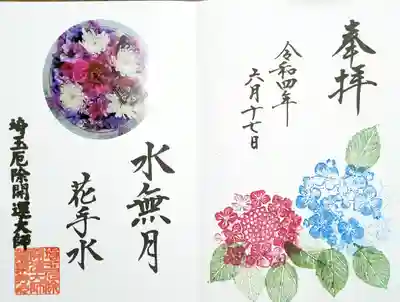 奉拝
令和四年
六月十七日
水無月
花手水
埼玉厄除開運大師